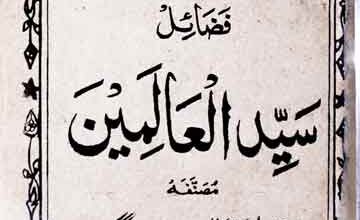 فَضَائِل
سَيِّدِ الْعَالَمِيْنَ
مُصَنَّفَهٗ